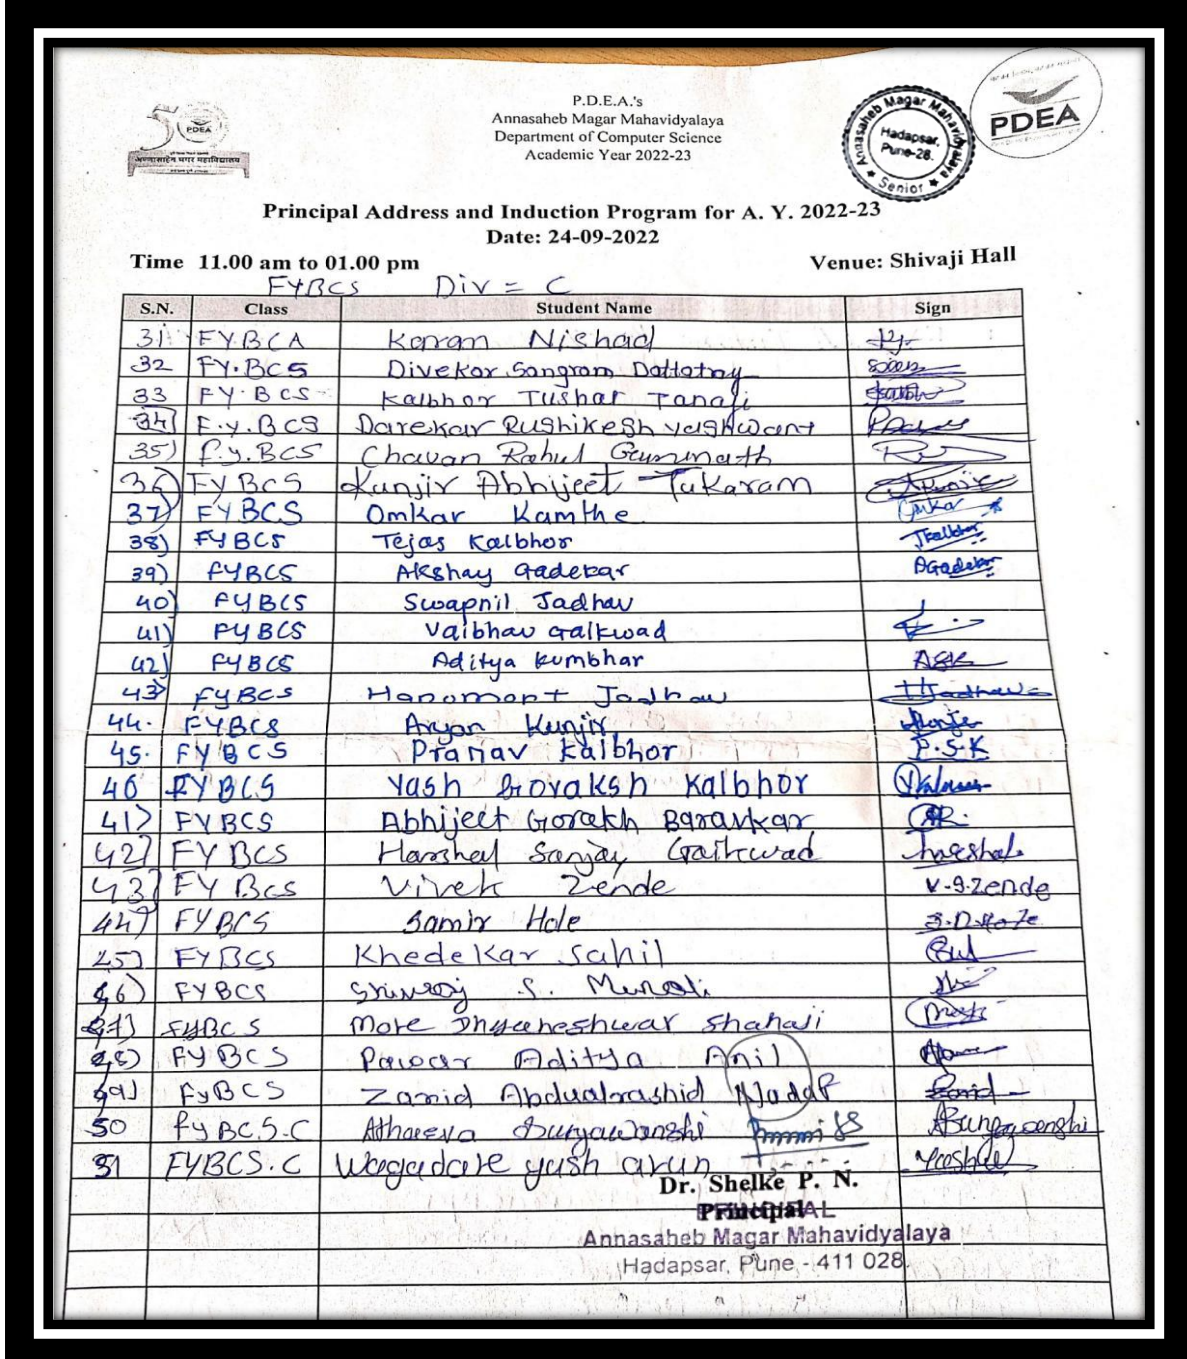 PDEA
अण्णासाहेब मगर महाविद्यालय
P.D.E.A.'s
Annasaheb Magar Mahavidyalaya
Department of Computer Science
Academic Year 2022-23
Annasaheb Magar Mahavidyalaya
Hadapsar,
Pune-28.
★ Senior ★
PDEA
Principal Address and Induction Program for A. Y. 2022-23
Date: 24-09-2022
Time 11.00 am to 01.00 pm Venue: Shivaji Hall
FYBCS Div = C
S.N. Class Student Name Sign
31 FYBCA Karan Nishad
32 FY.BCS Divekar Sangram Dattatray
33 FY.BCS Kalbhor Tushar Tanaji
34 F.y.BCS Darekar Rushikesh Yashwant
35) F.y.BCS Chavan Rahul
36) FYBCS Kunjir Abhijeet Tukaram
37) FYBCS Omkar Kamthe Omkar
38) FYBCS Tejas Kalbhor TKalbhor
39) FYBCS Akshay Gadekar AGadekar
40) FYBCS Swapnil Jadhav
41) FYBCS Vaibhav Gaikwad
42) FYBCS Aditya Kumbhar ASK
43) FYBCS Hanamant Jadhav HJadhav
44. FYBCS Aryan Kunjir
45. FYBCS Pranav Kalbhor P.S.K
46 FYBCS Yash Kalbhor
41) FYBCS Abhijeet Gorakh Baravkar
42) FYBCS Harshal Sanjay Gaikwad harshal
43) FYBCS Vivek Zende V.S.Zende
44) FYBCS Samir Hole S.D.Hole
45) FYBCS Khedekar Sahil
46) FYBCS S.
47) FYBCS More Dnyaneshwar Shahaji
48) FYBCS Pawar Aditya Anil
49) FyBCS Zamid Abdualrashid Nadaf Zamid
50 FyBCS.C Atharva Suryawanshi ASuryawanshi
51 FYBCS.C Wagadare yash arun
Dr. Shelke P. N.
Principal
PRINCIPAL
Annasaheb Magar Mahavidyalaya
Hadapsar, Pune - 411 028.